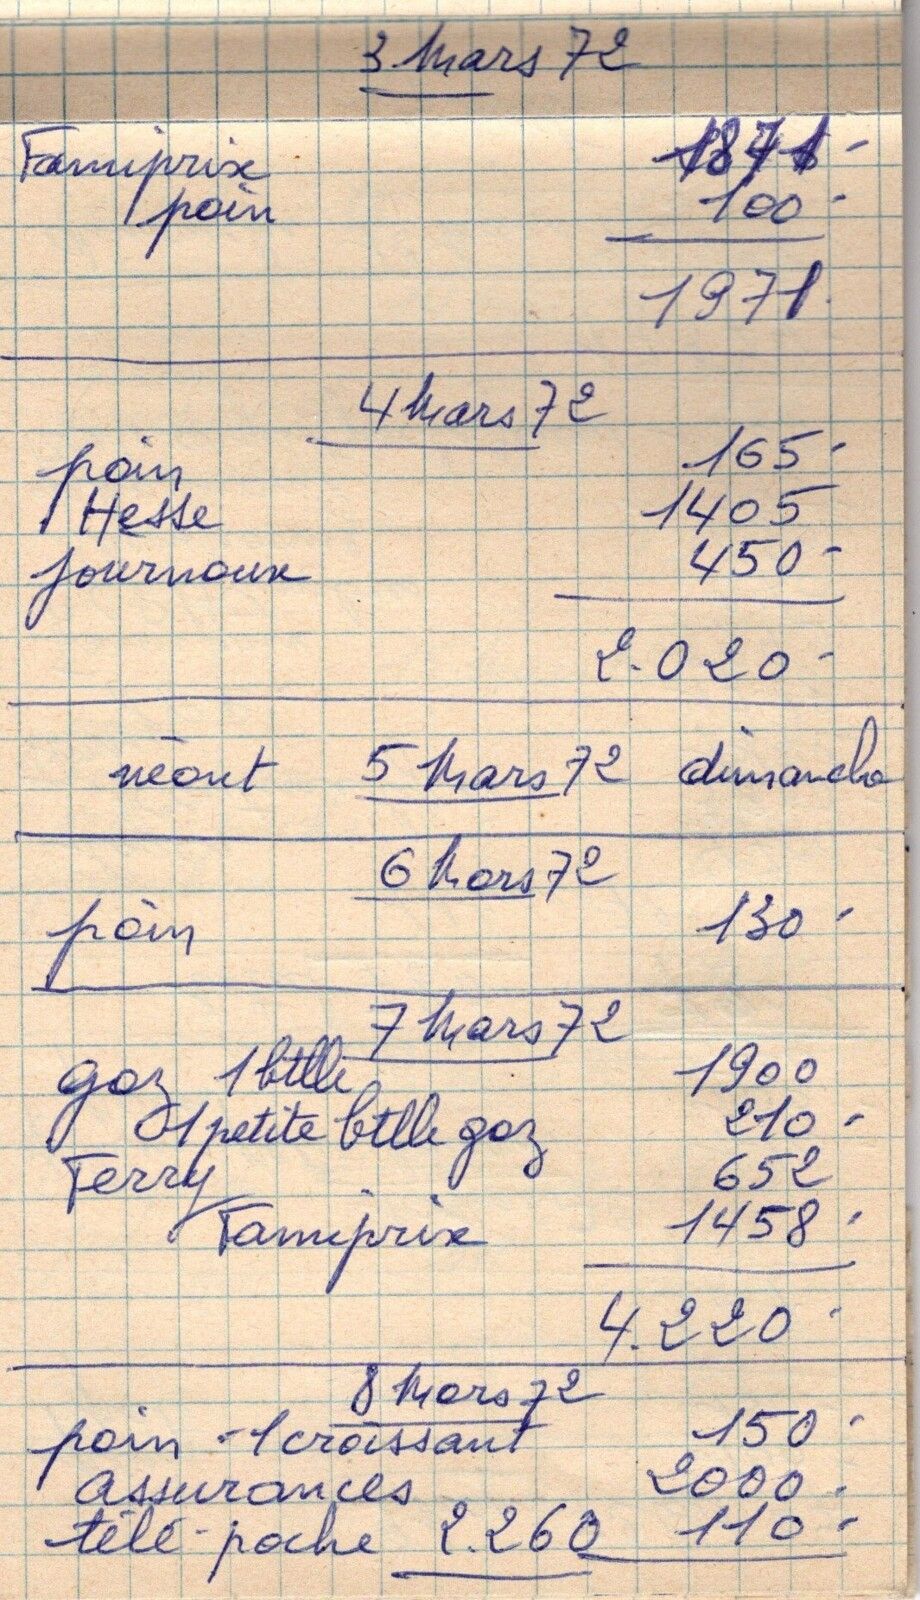 3 Mars 72
Famiprix 1871-
pain 100-
1971.
4 Mars 72
pain 165-
Hesse 1405
journaux 450-
2.020-
néant 5 Mars 72 dimanche
6 Mars 72
pain 130-
7 Mars 72
gaz 1 btlle 1900
1 petite btlle gaz 210-
Ferry 652
Famiprix 1458-
4.220-
8 Mars 72
pain - 1 croissant 150-
assurances 2000-
télé-poche 2.260 110-